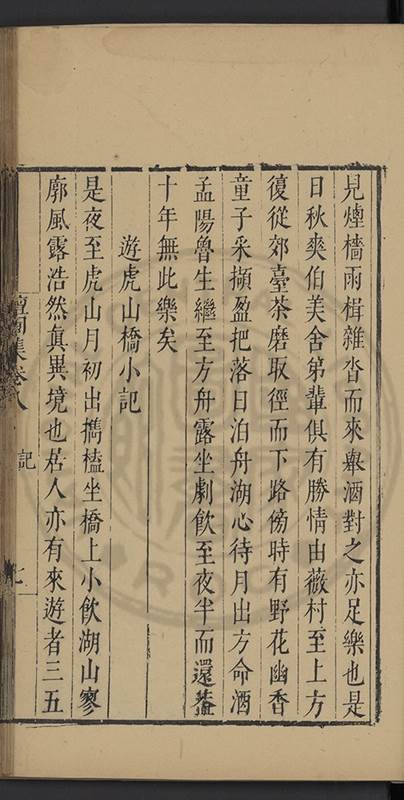 見煙檣雨楫雜沓而來舉酒對之亦足樂也是
日秋爽伯美舍弟輩俱有勝情由薇村至上方
復從郊臺茶磨取徑而下路傍時有野花幽香
童子采擷盈把落日泊舟湖心待月出方命酒
孟陽魯生繼至方舟露坐劇飲至夜半而還蓋
十年無此樂矣
遊虎山橋小記
是夜至虎山月初出攜榼坐橋上小飲湖山寥
廓風露浩然真異境也居人亦有來遊者三五
檀園集卷八 記 七